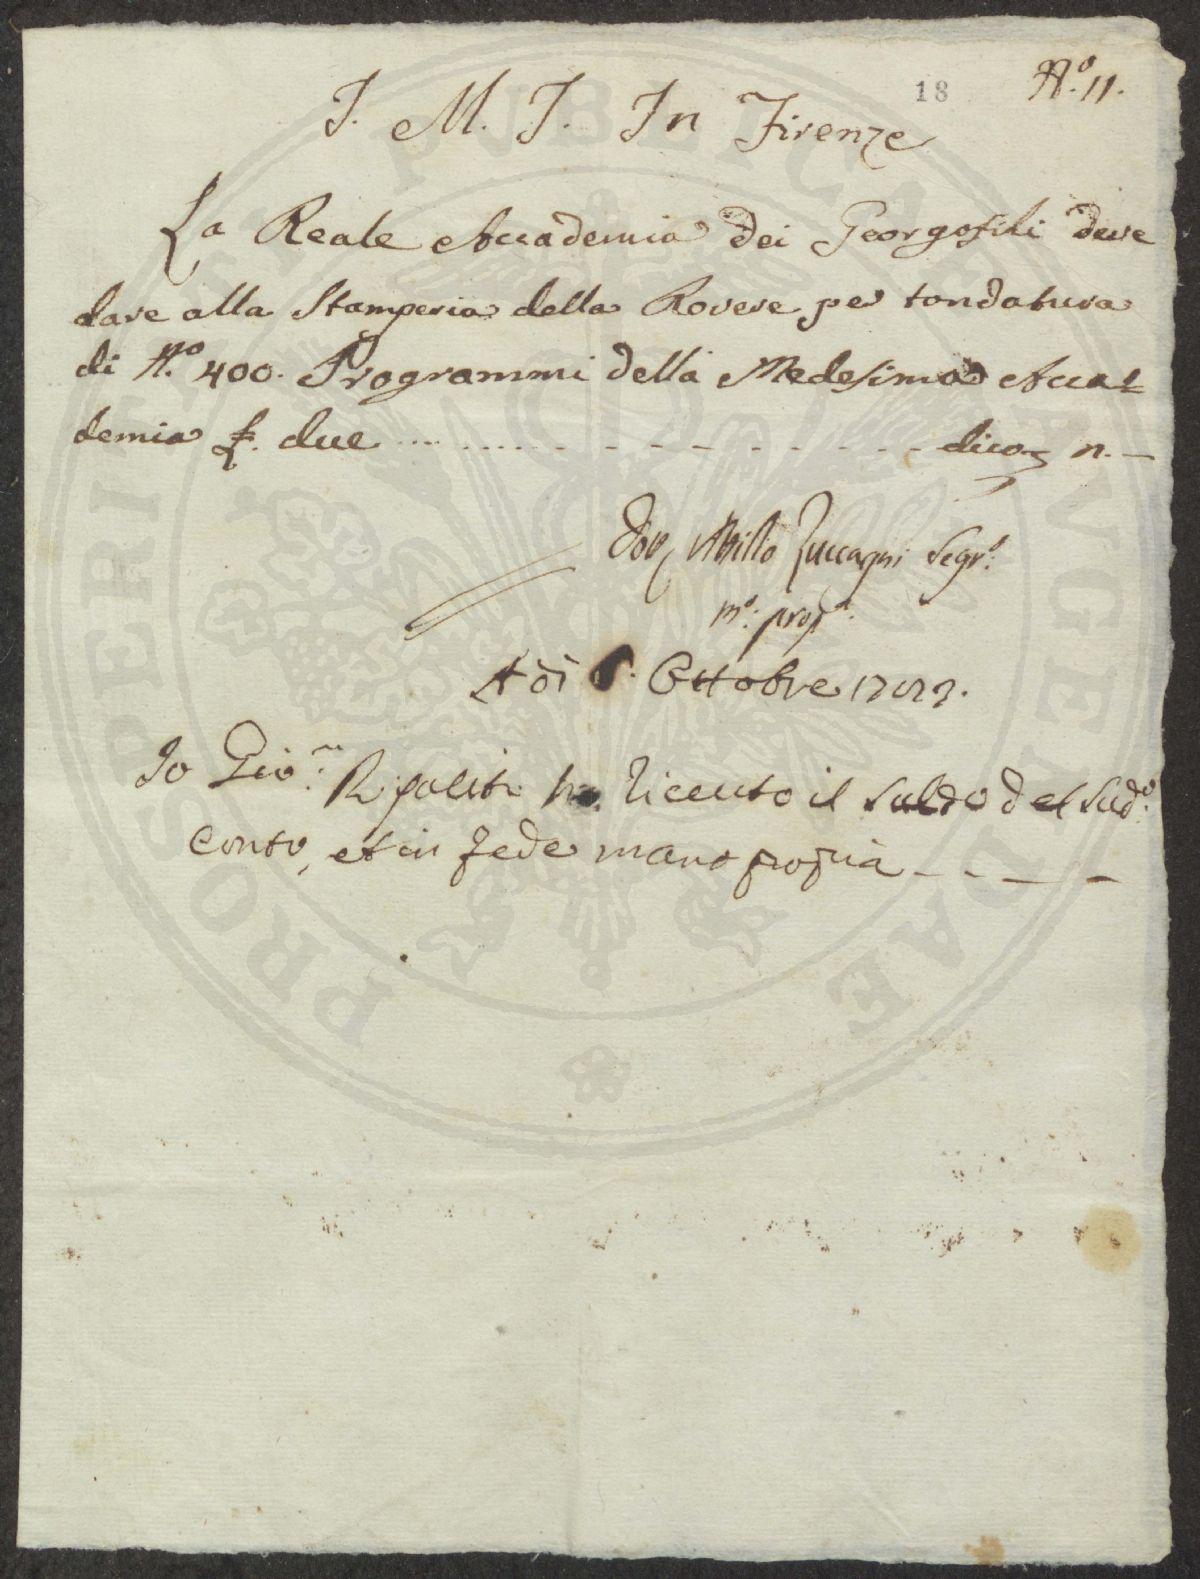 18
N.º 11.
J. M. J. In Firenze
La Reale Accademia dei Georgofili deve
dare alla Stamperia della Rovere per tondatura
di N.º 400. Programmi della Medesima Acca=
demia £. due ................ dico £ n. —
Dot. Attilio Zuccagni Segr.º
m.º: prop.ª:
A dì 6. Ottobre
Io Gio: ho riceuto il saldo del Sud.º:
Conto, et in fede mano propia - - — —
PROSPERITATI PUBLICAE AUGENDAE